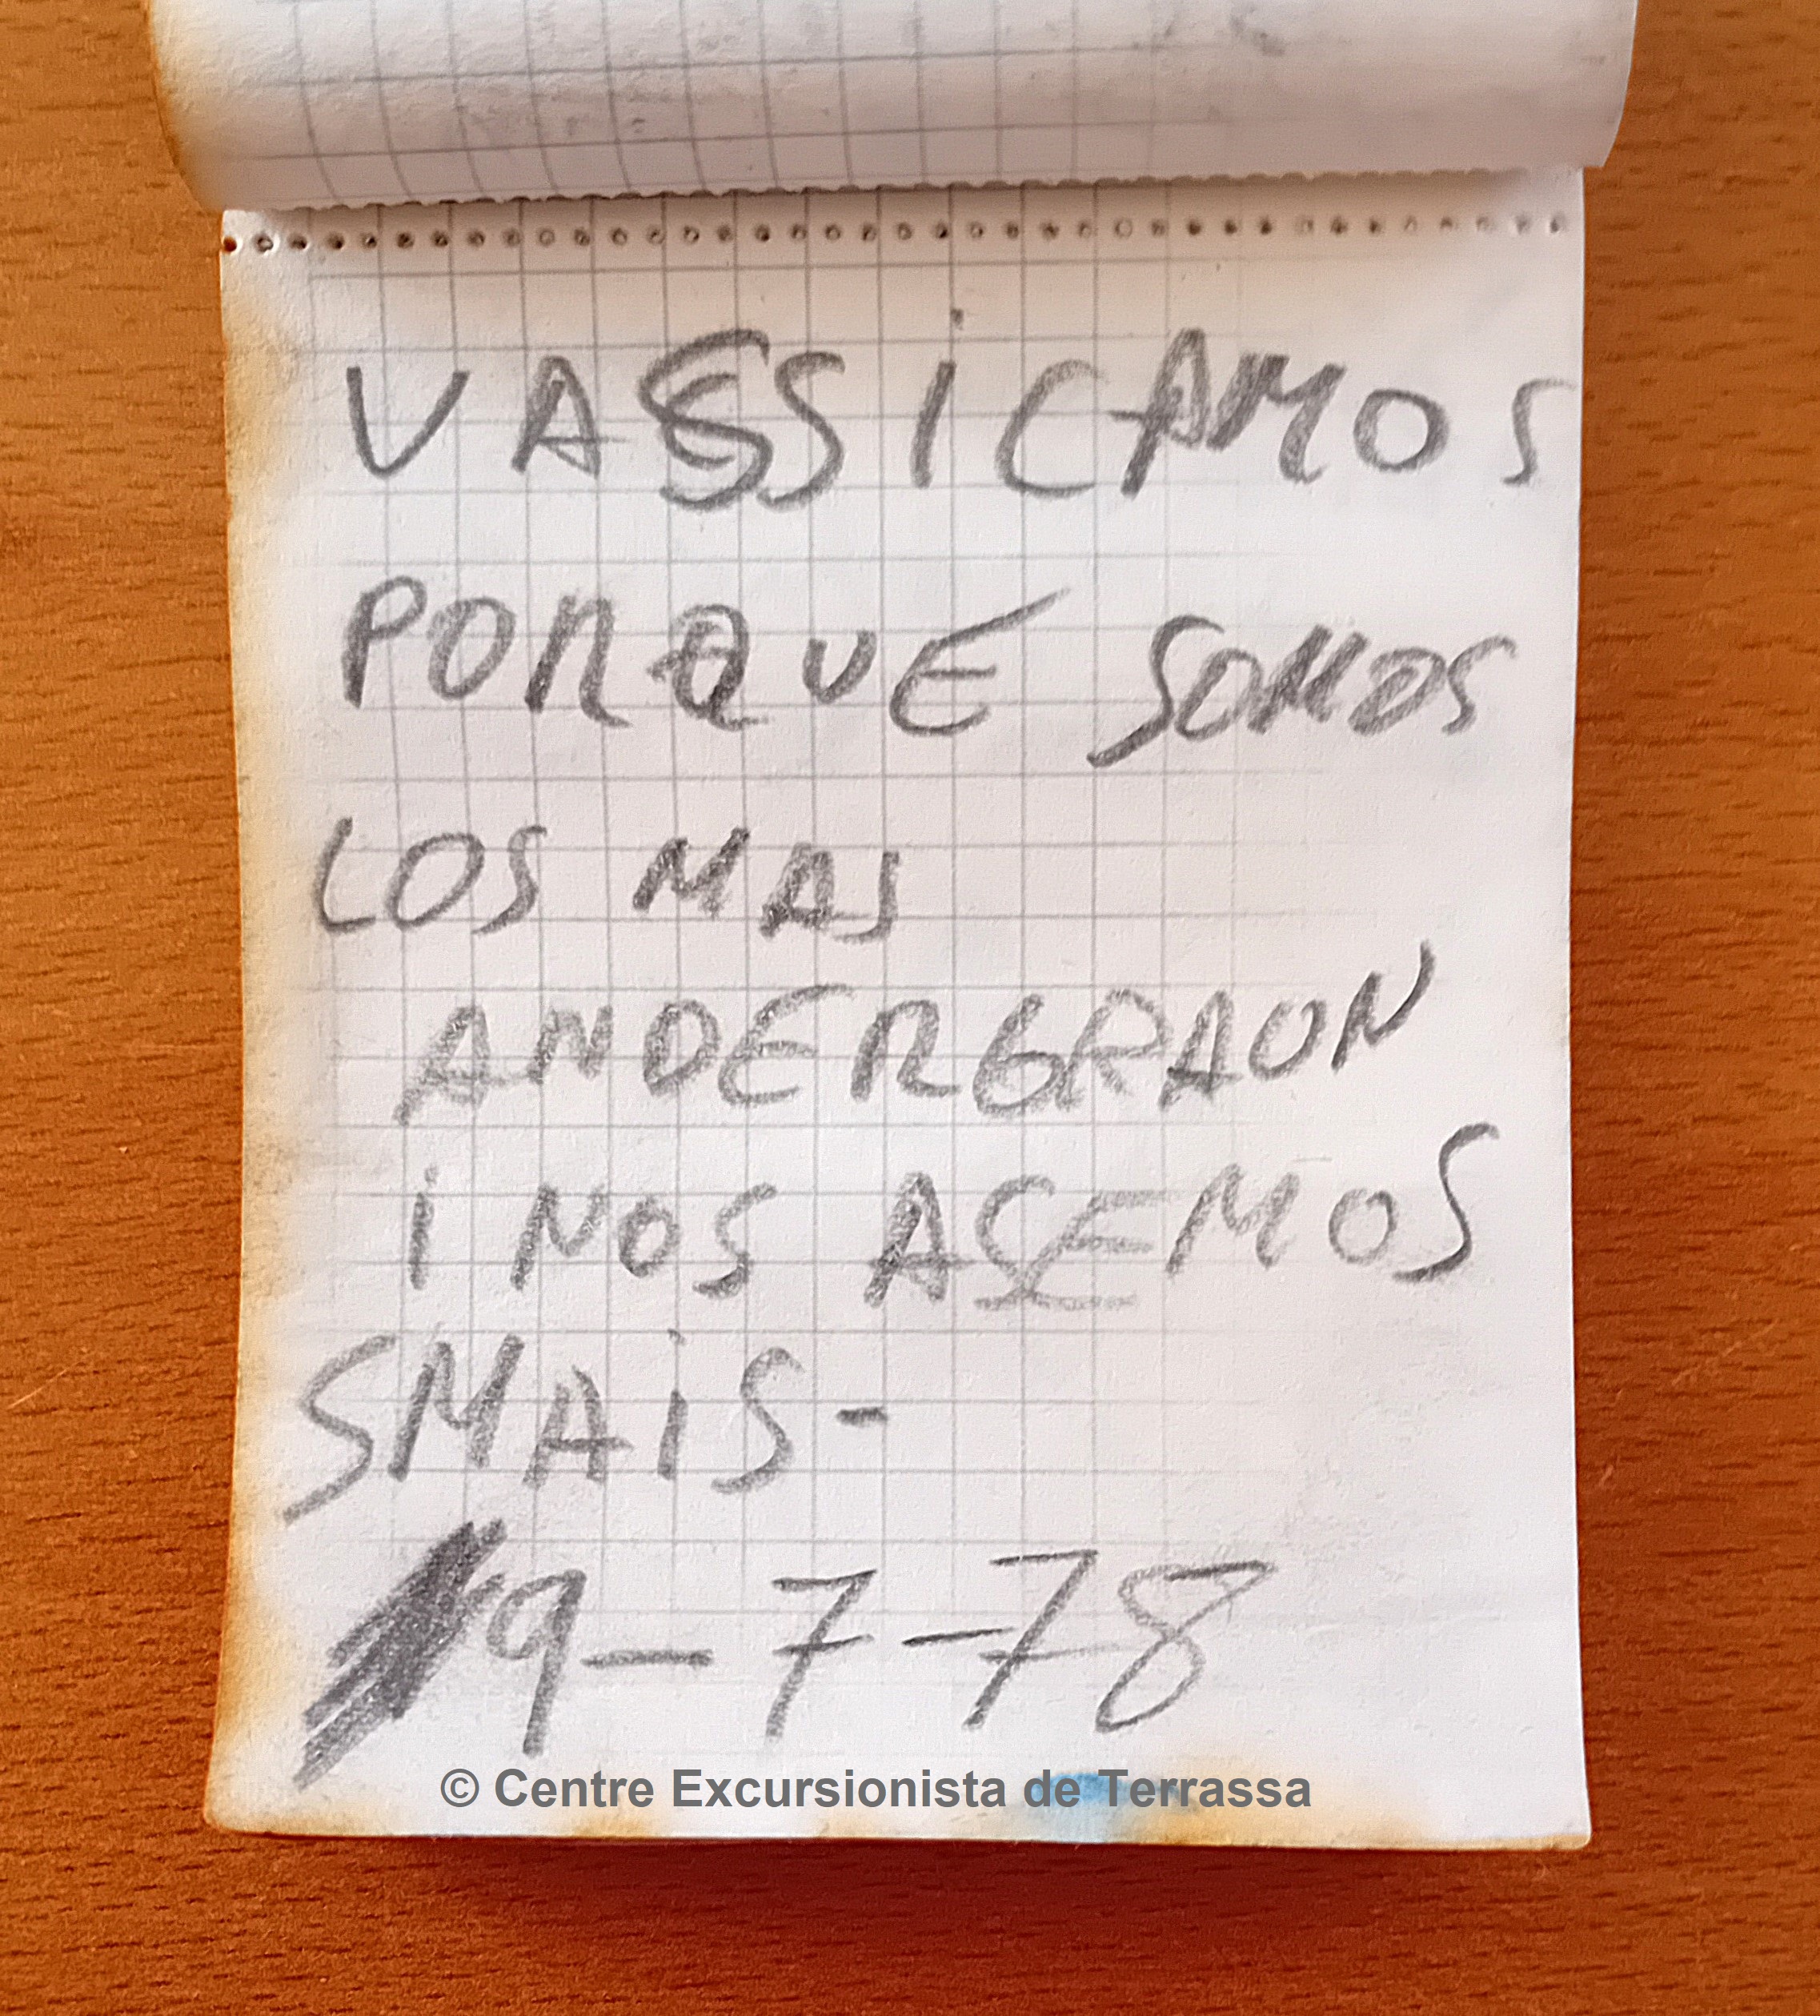 VASSiCAMOS
PORQUE SOMOS
LOS MAS
ANDERGRAON
i NOS ASEMOS
SMAiS-
9-7-78
© Centre Excursionista de Terrassa